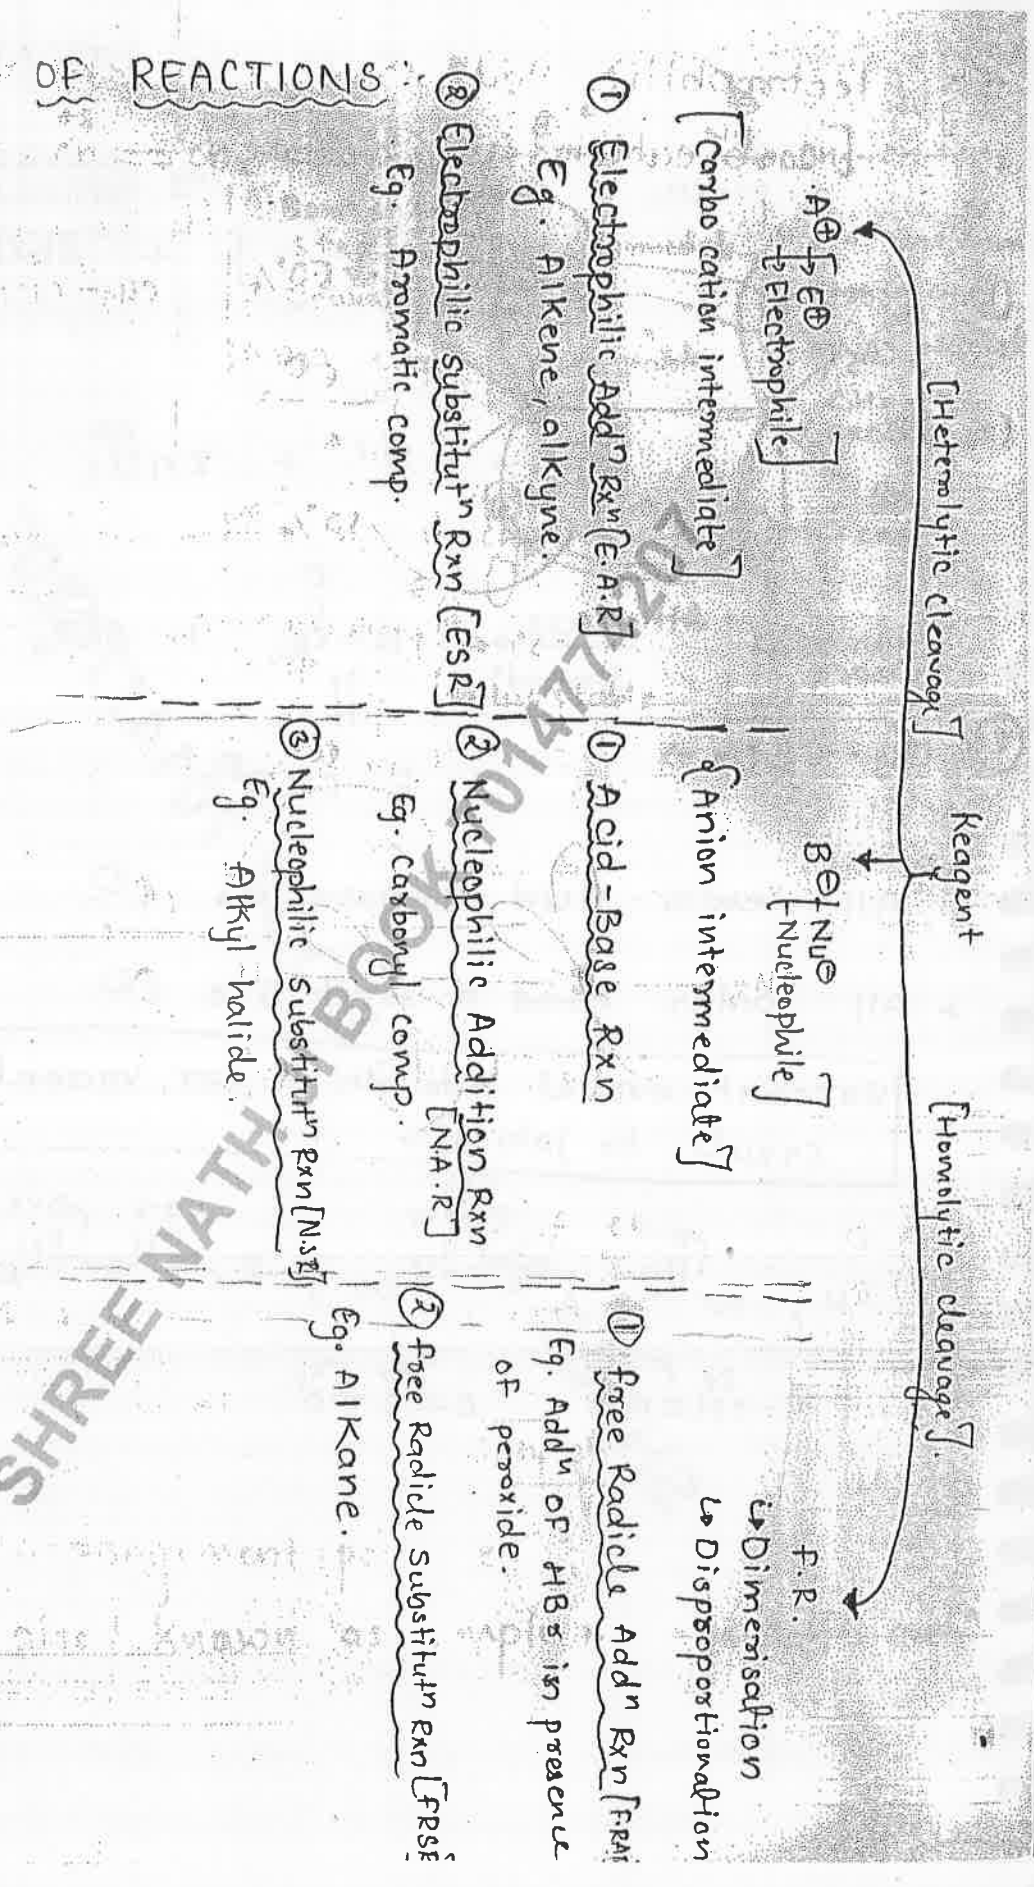 OF REACTIONS :
Reagent
[Heterolytic cleavage]
[Homolytic cleavage].
A⊕ → [E⊕
→ Electrophile]
[Carbo cation intermediate]
① Electrophilic Addⁿ Rxn [E.A.R]
Eg. Alkene, alkyne.
② Electrophilic substitutⁿ Rxn [ESR]
Eg. Aromatic comp.
B⊖ [Nu⊖
Nucleophile]
{Anion intermediate]
① Acid-Base Rxn
② Nucleophilic Addition Rxn
[N.A.R]
Eg. Carbonyl comp.
③ Nucleophilic substitutⁿ Rxn [N.SR]
Eg. Alkyl halide.
F.R.
↳ Dimerisation
↳ Disproportionation
① free Radicle Addⁿ Rxn [FRAR
Eg. Addⁿ OF HBr in presence
of peroxide.
② free Radicle Substitutⁿ Rxn [FRSR
Eg. Alkane.
SHREE NATH JI BOOK